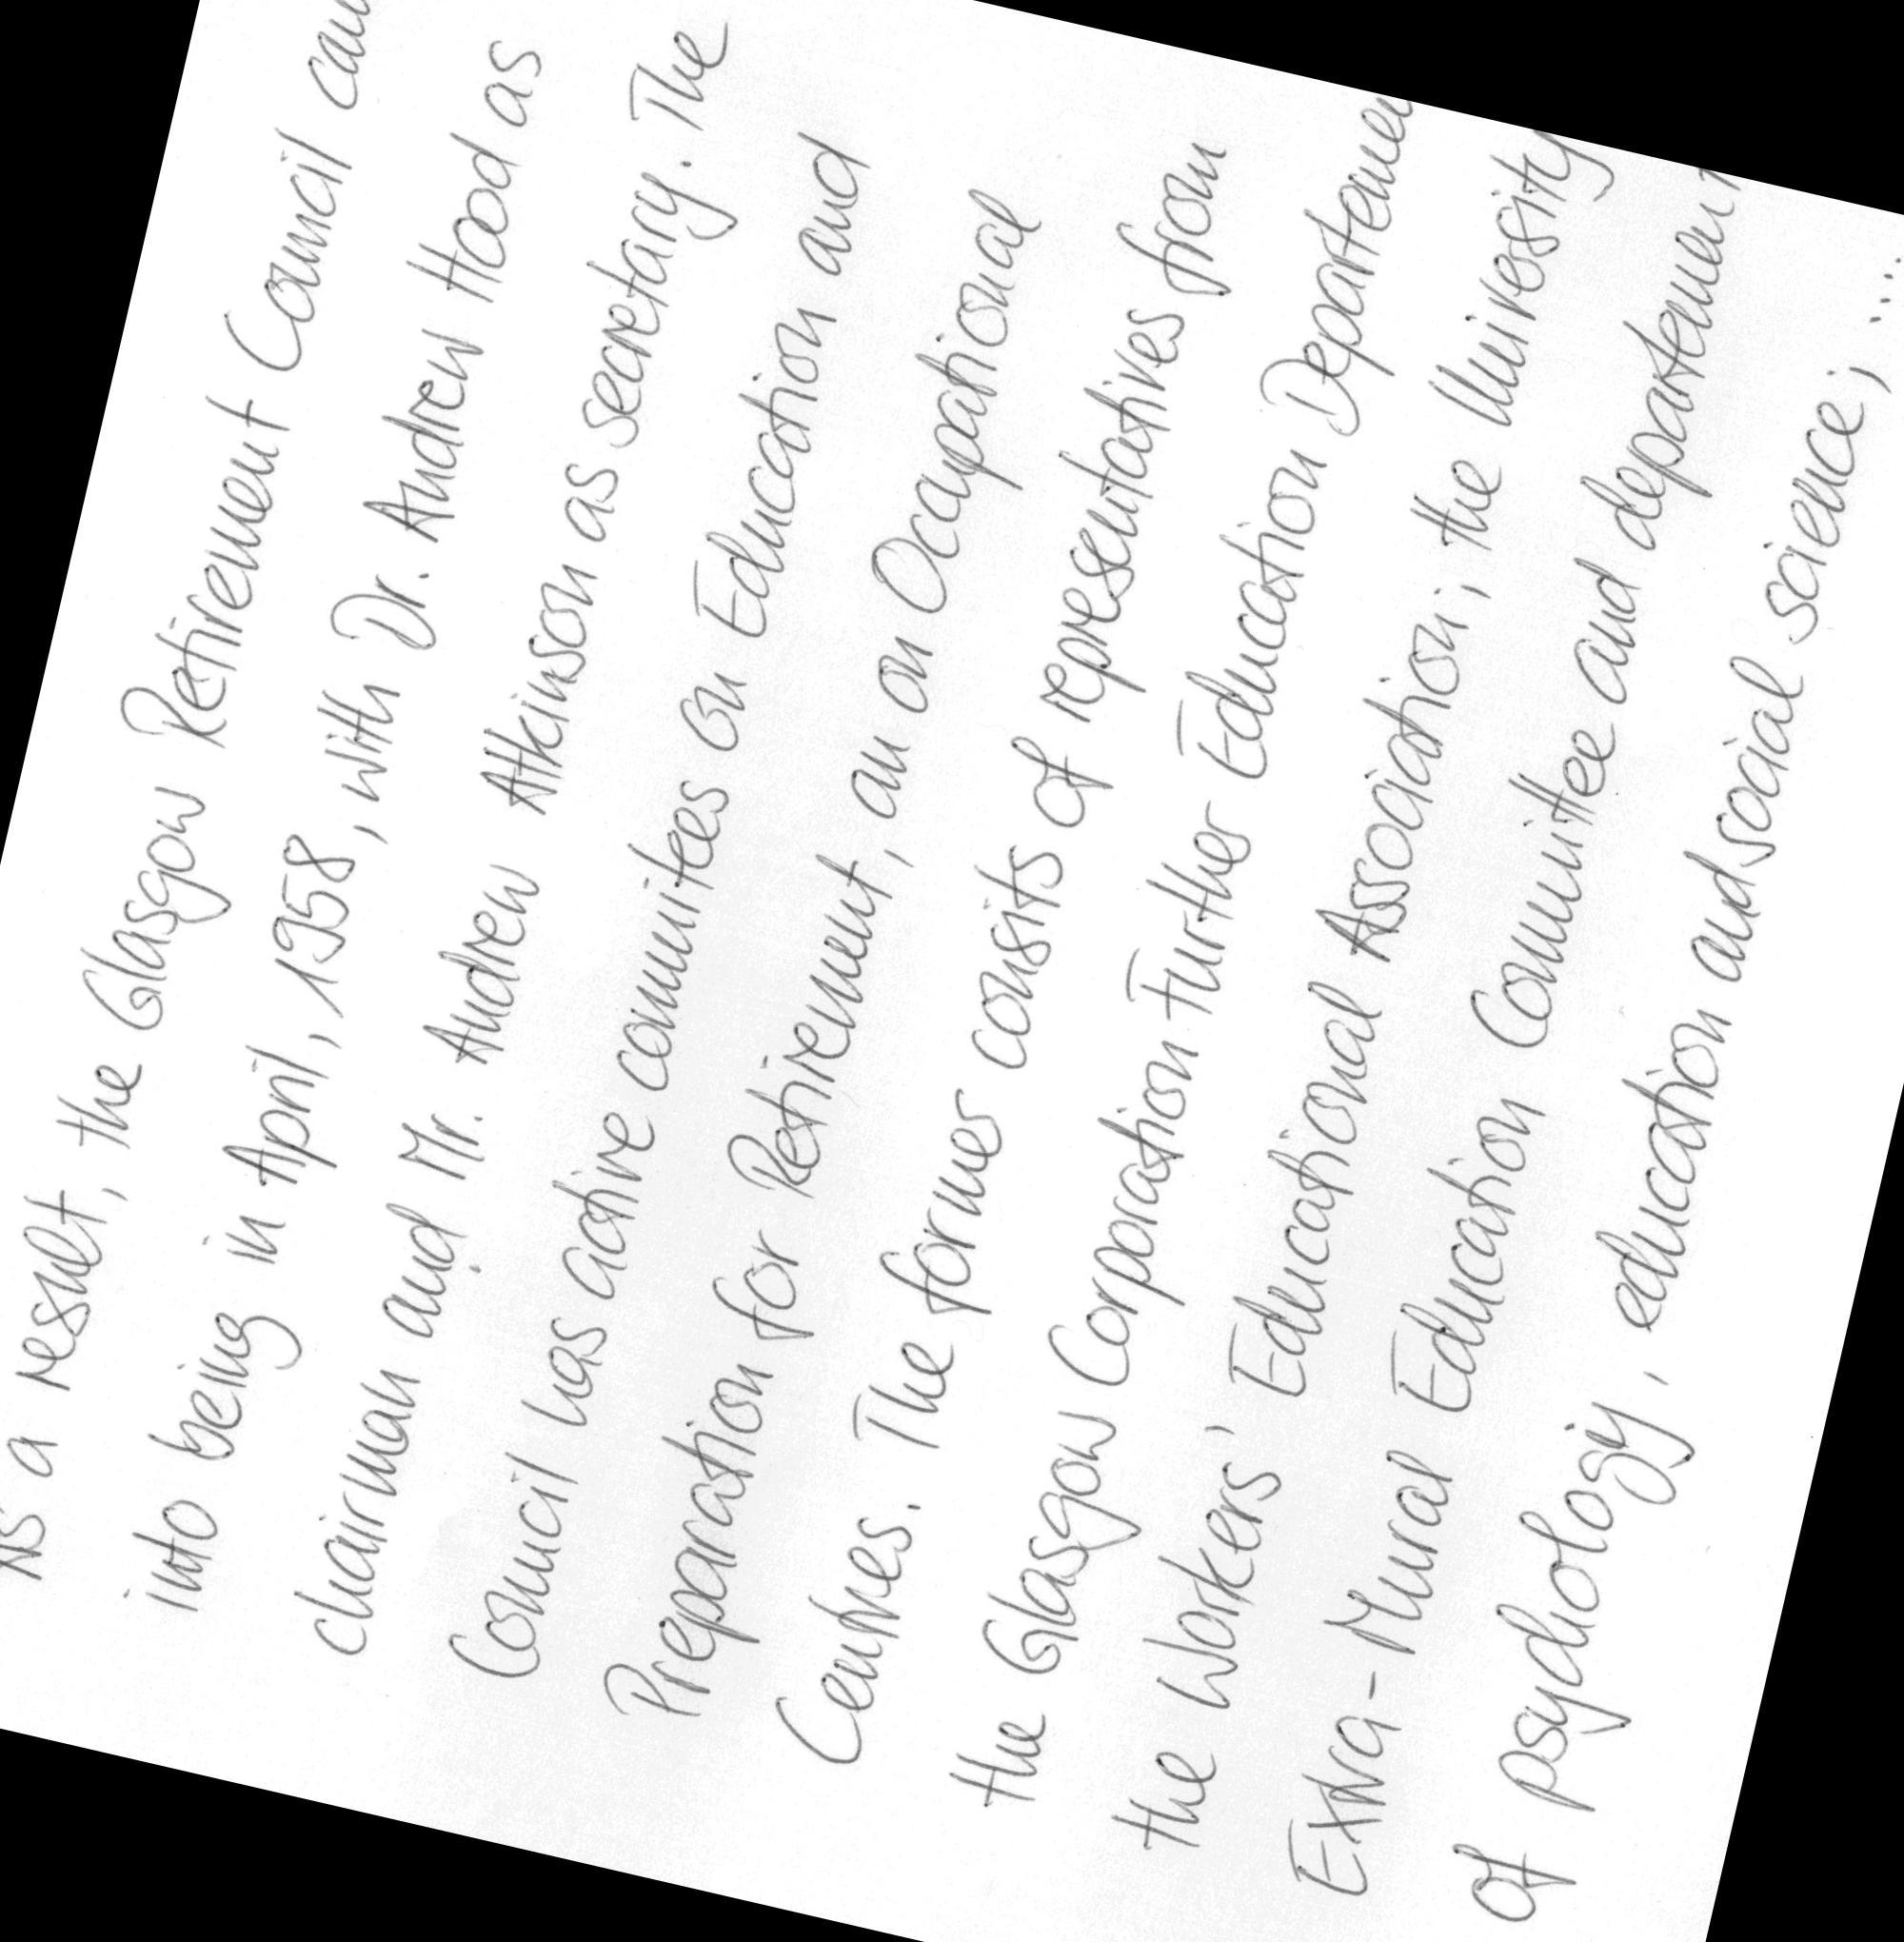 As a result, the Glasgow Retirement Council
into being in April, 1958, with Dr. Andrew Hood as
chairman and Mr. Andrew Atkinson as secretary. The
Council has active commitees on Education and
Preparation for Retirement, an on Occupational
Centres. The former consits of representatives from
the Glasgow Corporation Further Education
the Workers' Educational Association; the University
Extra-Mural Education Committee and departement
of psychology, education and social science; ...